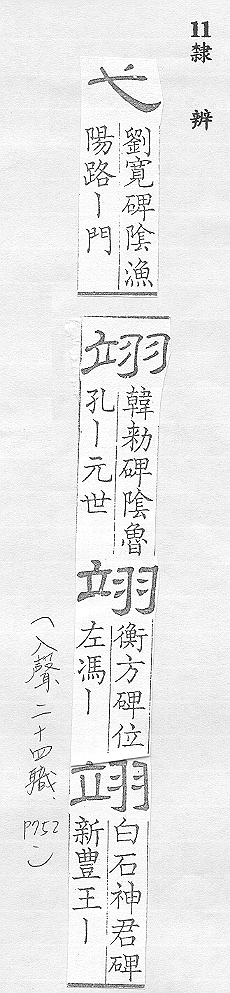 11隸辨
弋
劉寬碑陰漁
陽路ー門
翊
韓勑碑陰魯
孔ー元世
翊
衡方碑位
左馮ー
翊
白石神君碑
新豊王ー
(入聲二十四職、P752)